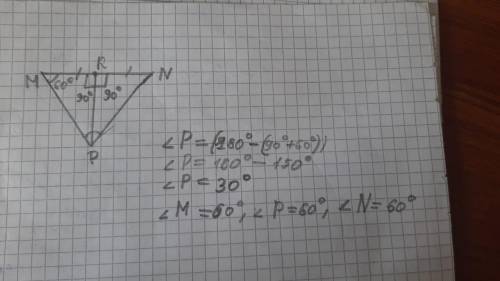 R
M 60° N
90° 90°
P
∠P = (180° - (90° + 60°))
∠P = 180° - 150°
∠P = 30°
∠M = 60°, ∠P = 60°, ∠N = 60°